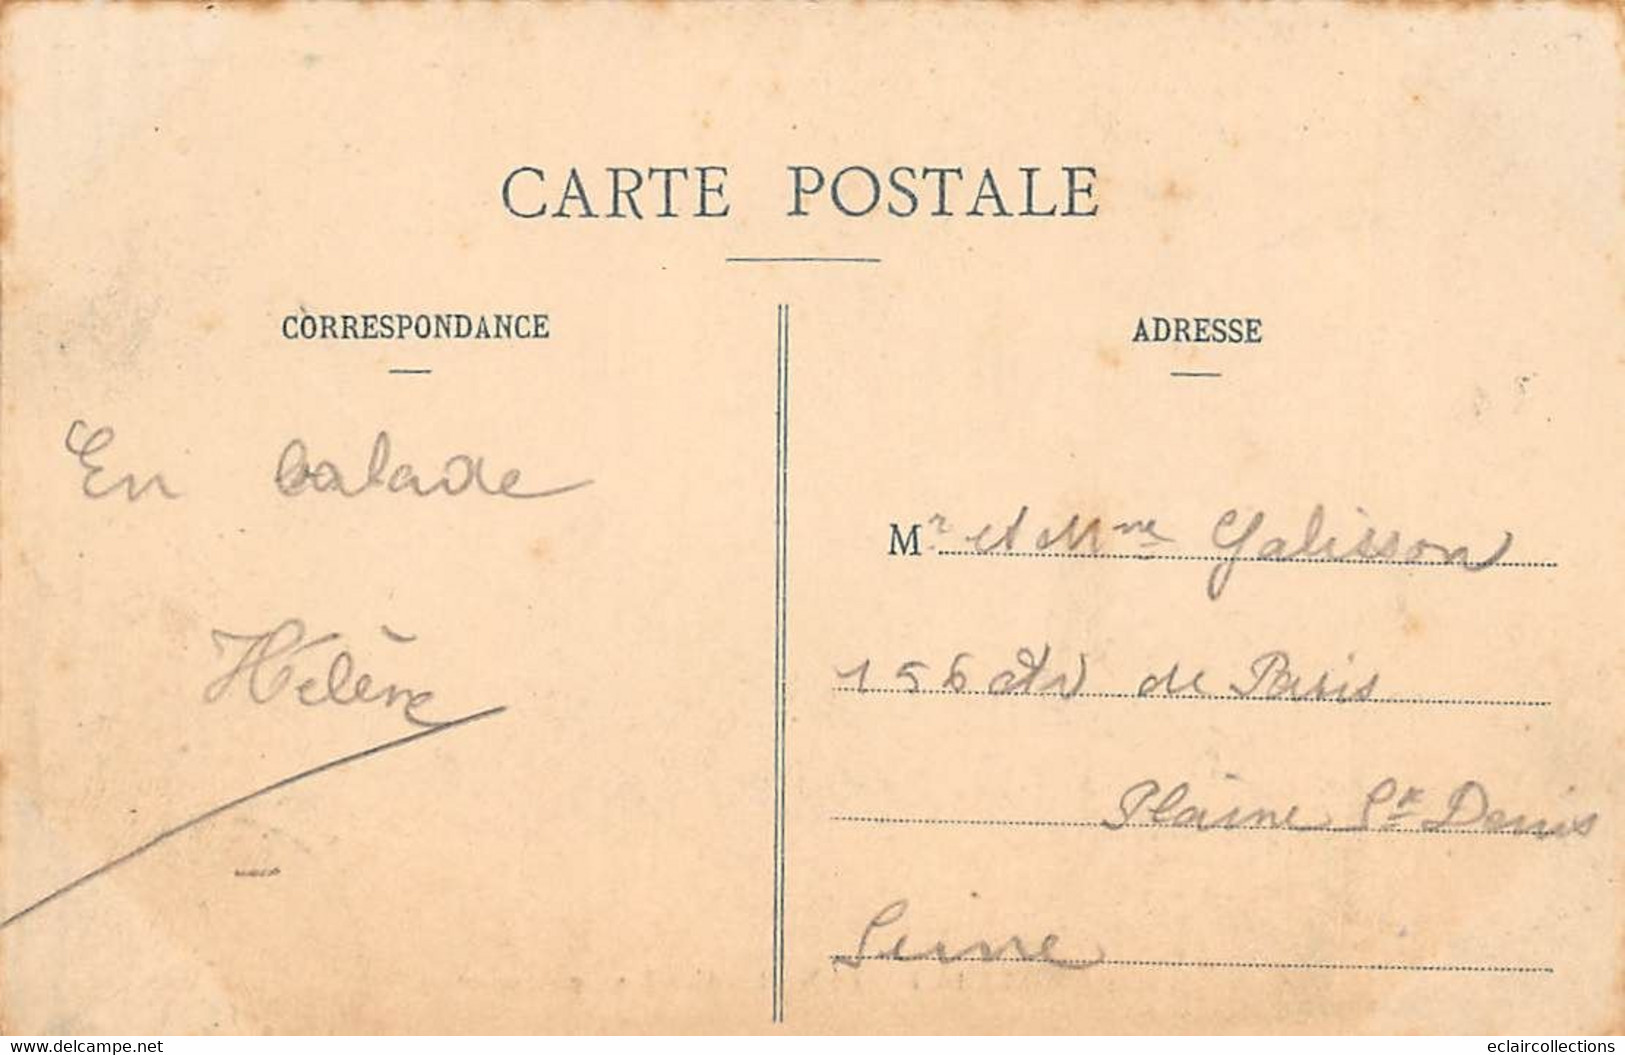 CARTE POSTALE
CORRESPONDANCE
En balade
Hélène
ADRESSE
Mr et Mme Galisson
156 Av de Paris
Plaine St Denis
Seine
www.delcampe.net
eclaircollections